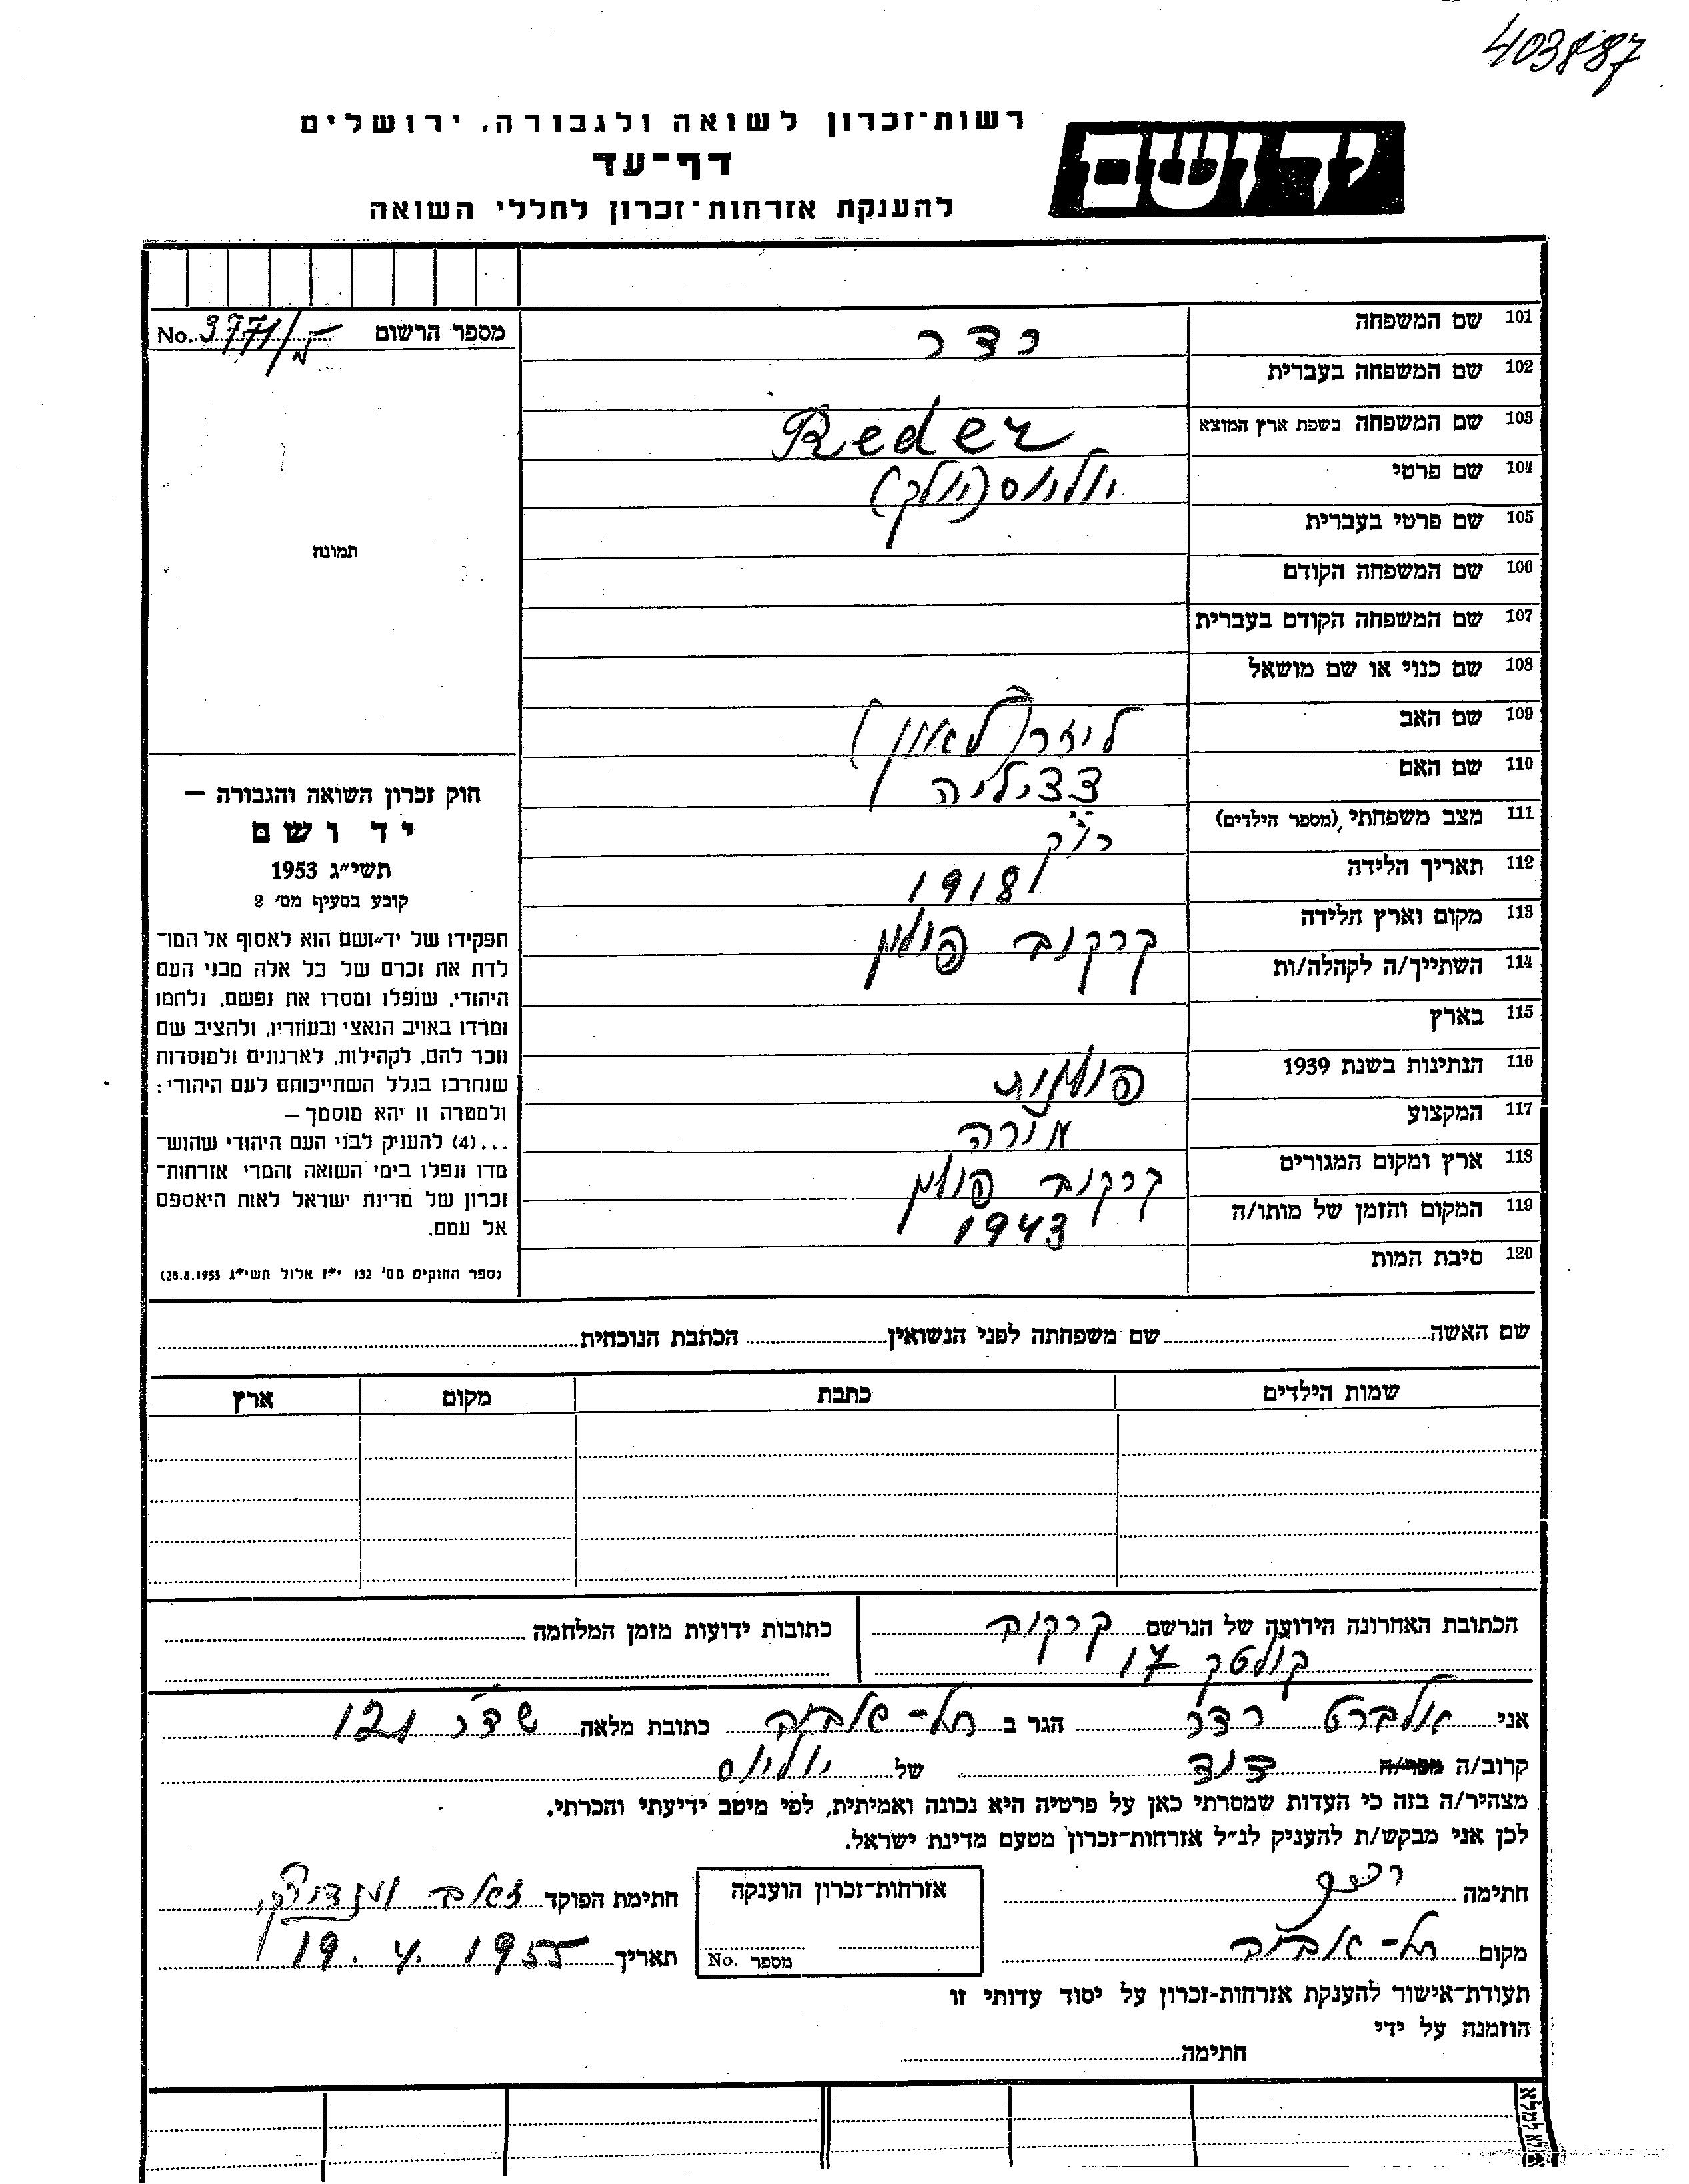 403887
רשות־זכרון לשואה ולגבורה, ירושלים
דף־עד
להענקת אזרחות־זכרון לחללי השואה
יד ושם
מספר הרשום No. 3771/
101 שם המשפחה רדר
102 שם המשפחה בעברית
103 שם המשפחה בשפת ארץ המוצא Reder
104 שם פרטי יוליוס (יולק)
105 שם פרטי בעברית
106 שם המשפחה הקודם
107 שם המשפחה הקודם בעברית
108 שם כנוי או שם מושאל
109 שם האב ליזר (לאון)
110 שם האם צציליה
111 מצב משפחתי (מספר הילדים) רווק
112 תאריך הלידה 1918
113 מקום וארץ הלידה קרקוב פולין
114 השתייך/ה לקהלה/ות
115 בארץ
116 הנתינות בשנת 1939 פולנית
117 המקצוע מורה
118 ארץ ומקום המגורים קרקוב פולין
119 המקום והזמן של מותו/ה 1943
120 סיבת המות
תמונה
חוק זכרון השואה והגבורה —
יד ושם
תשי״ג 1953
קובע בסעיף מס׳ 2
תפקידו של יד־ושם הוא לאסוף אל המו־
לדת את זכרם של כל אלה מבני העם
היהודי, שנפלו ומסרו את נפשם, נלחמו
ומרדו באויב הנאצי ובעוזריו, ולהציב שם
וזכר להם, לקהילות, לארגונים ולמוסדות
שנחרבו בגלל השתייכותם לעם היהודי;
ולמטרה זו יהא מוסמך —
...(4) להעניק לבני העם היהודי שהוש־
מדו ונפלו בימי השואה והמרי אזרחות־
זכרון של מדינת ישראל לאות היאספם
אל עמם.
(ספר החוקים מס׳ 132 י״ז אלול תשי״ג 28.8.1953)
שם האשה שם משפחתה לפני הנשואין הכתבת הנוכחית
שמות הילדים כתבת מקום ארץ
הכתובת האחרונה הידועה של הנרשם קרקוב
קולטק 17
כתובות ידועות מזמן המלחמה
אני אלברט רדר הגר ב תל-אביב כתובת מלאה 121
קרוב/ה מכר/ה דוד של יוליוס
מצהיר/ה בזה כי העדות שמסרתי כאן על פרטיה היא נכונה ואמיתית, לפי מיטב ידיעתי והכרתי.
לכן אני מבקש/ת להעניק לנ״ל אזרחות־זכרון מטעם מדינת ישראל.
חתימה
אזרחות־זכרון הוענקה
מספר No.
חתימת הפוקד
מקום תל-אביב
תאריך 19. 4. 1955
תעודת־אישור להענקת אזרחות־זכרון על יסוד עדותי זו
הוזמנה על ידי
חתימה